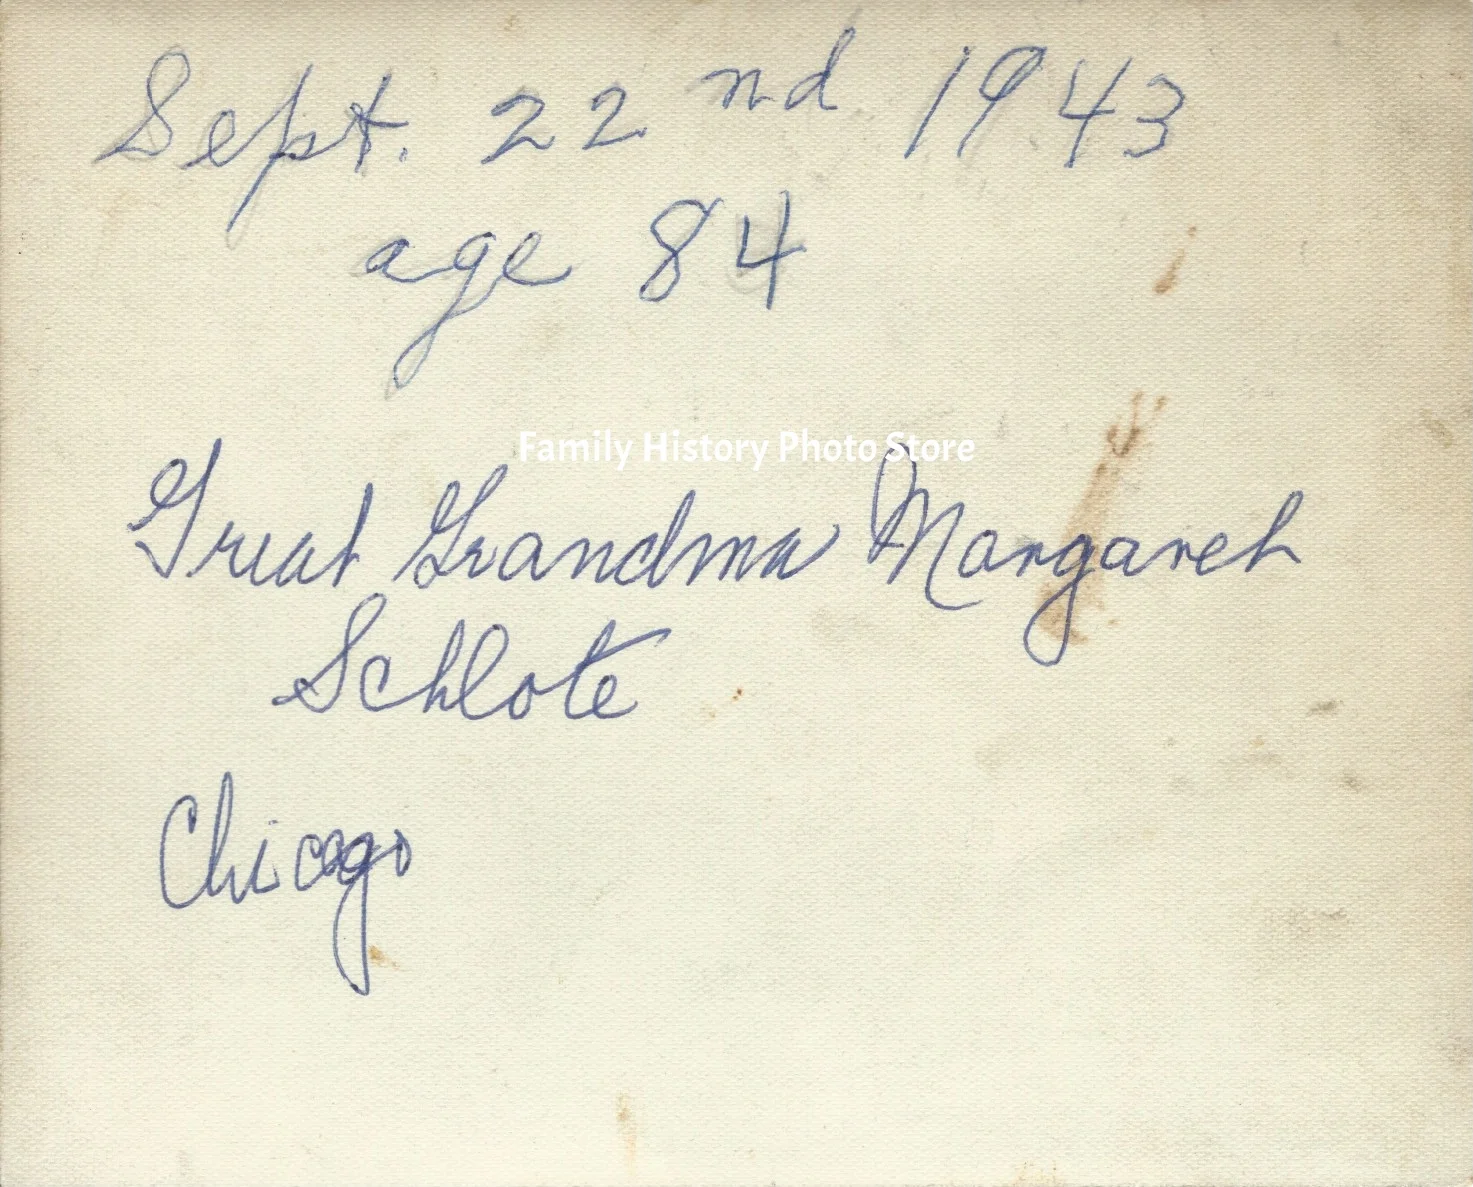 Sept. 22nd 1943
age 84
Family History Photo Store
Great Grandma Margaret
Schlote
Chicago